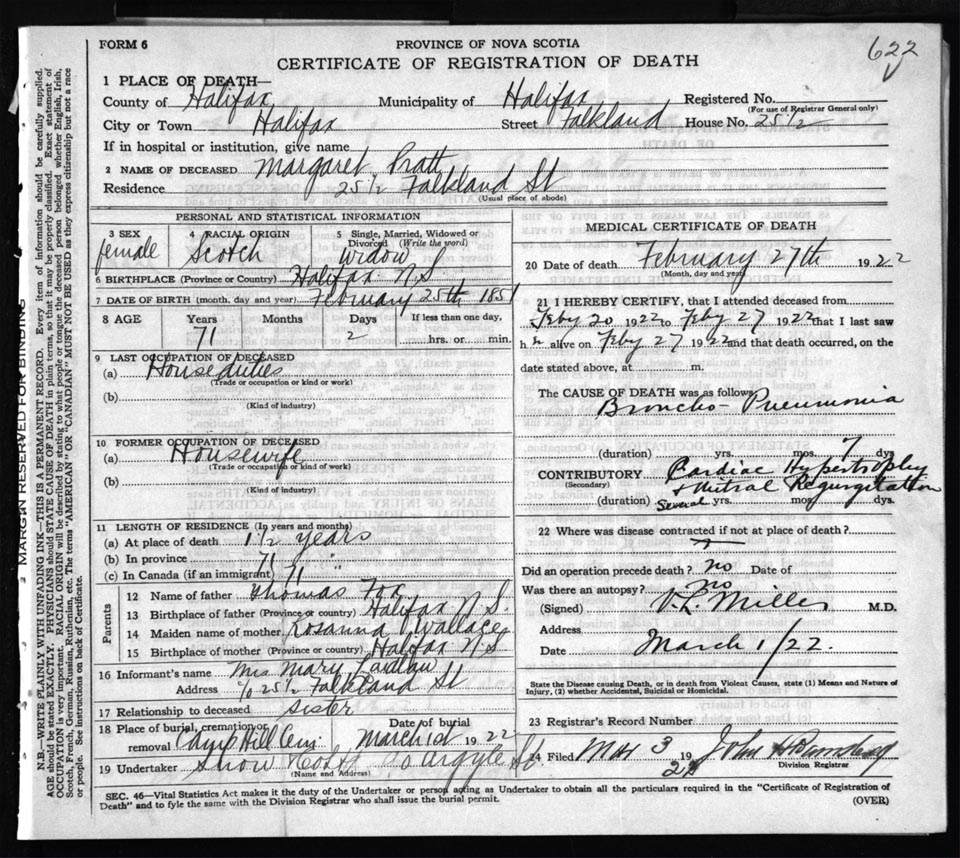 FORM 6
PROVINCE OF NOVA SCOTIA
622
CERTIFICATE OF REGISTRATION OF DEATH
1 PLACE OF DEATH—
County of Halifax Municipality of Halifax Registered No.
(For use of Registrar General only)
City or Town Halifax Street Falkland House No. 25½
If in hospital or institution, give name
2 NAME OF DECEASED Margaret Pratt
Residence 25½ Falkland St
(Usual place of abode)
PERSONAL AND STATISTICAL INFORMATION
3 SEX female
4 RACIAL ORIGIN Scotch
5 Single, Married, Widowed or Divorced (Write the word) Widow
6 BIRTHPLACE (Province or Country) Halifax N.S.
7 DATE OF BIRTH (month, day and year) February 25th 1851
8 AGE Years Months Days If less than one day,
71 2 hrs. or min.
9 LAST OCCUPATION OF DECEASED
(a) House duties
(Trade or occupation or kind or work)
(b)
(Kind of industry)
10 FORMER OCCUPATION OF DECEASED
(a) Housewife
(Trade or occupation or kind of work)
(b)
(Kind of industry)
11 LENGTH OF RESIDENCE (In years and months)
(a) At place of death 1½ years
(b) In province 71 "
(c) In Canada (if an immigrant) 71
Parents
12 Name of father Thomas Fox
13 Birthplace of father (Province or country) Halifax N.S.
14 Maiden name of mother Rosanna Wallace
15 Birthplace of mother (Province or country) Halifax N S
16 Informant's name Mrs Mary Laidlaw
Address c/o 25½ Falkland St
17 Relationship to deceased sister
18 Place of burial, cremation or removal Camp Hill Cem. Date of burial March 1st 1922
19 Undertaker Snow & Co 90 Argyle St.
(Name and Address)
MEDICAL CERTIFICATE OF DEATH
20 Date of death February 27th 1922
(Month, day and year)
21 I HEREBY CERTIFY, that I attended deceased from
Feby 20 1922 to Feby 27 1922 that I last saw
h er alive on Feby 27 1922 and that death occurred, on
date stated above, at m.
The CAUSE OF DEATH was as follows:
Broncho-Pneumonia
(duration) yrs. mos. 7 dys
CONTRIBUTORY Cardiac Hypertrophy
(Secondary) & Mitral Regurgitation
(duration) Several yrs. mos. dys.
22 Where was disease contracted if not at place of death?
Did an operation precede death? No Date of
Was there an autopsy? no
(Signed) V.L. Miller M.D.
Address
Date March 1/22.
State the Disease causing Death, or in death from Violent Causes, state (1) Means and Nature of
Injury, (2) whether Accidental, Suicidal or Homicidal.
23 Registrar's Record Number
24 Filed Mar 3 1922 John H
Division Registrar
SEC. 46—Vital Statistics Act makes it the duty of the Undertaker or person acting as Undertaker to obtain all the particulars required in the "Certificate of Registration of
Death" and to fyle the same with the Division Registrar who shall issue the burial permit.
(OVER)
MARGIN RESERVED FOR BINDING
N.B.—WRITE PLAINLY WITH UNFADING INK—THIS IS A PERMANENT RECORD. Every item of information should be carefully supplied.
AGE should be stated EXACTLY. PHYSICIANS should STATE CAUSE OF DEATH in plain terms, so that it may be properly classified. Exact statement of
OCCUPATION is very important. RACIAL ORIGIN will be described by stating to what people or tongue the deceased person belonged, whether English, Irish,
Scotch, French, German, Russian, Ruthenian, etc. The terms "AMERICAN" OR "CANADIAN" MUST NOT BE USED as they express citizenship but not a race
or people. See instructions on back of Certificate.